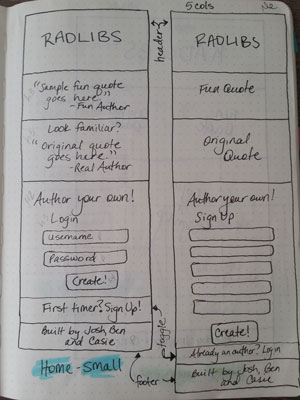 5 cols
RADLIBS
"Sample fun quote
goes here."
- Fun Author
Look familiar?
"Original quote
goes here."
- Real Author
Author your own!
Login
Username
Password
Create!
First timer? Sign Up!
Built by Josh, Ben
and Casie
Home - Small
header
toggle
footer
RADLIBS
Fun Quote
Original
Quote
Author your own!
Sign Up
Create!
Already an author? Login
Built by Josh, Ben
and Casie